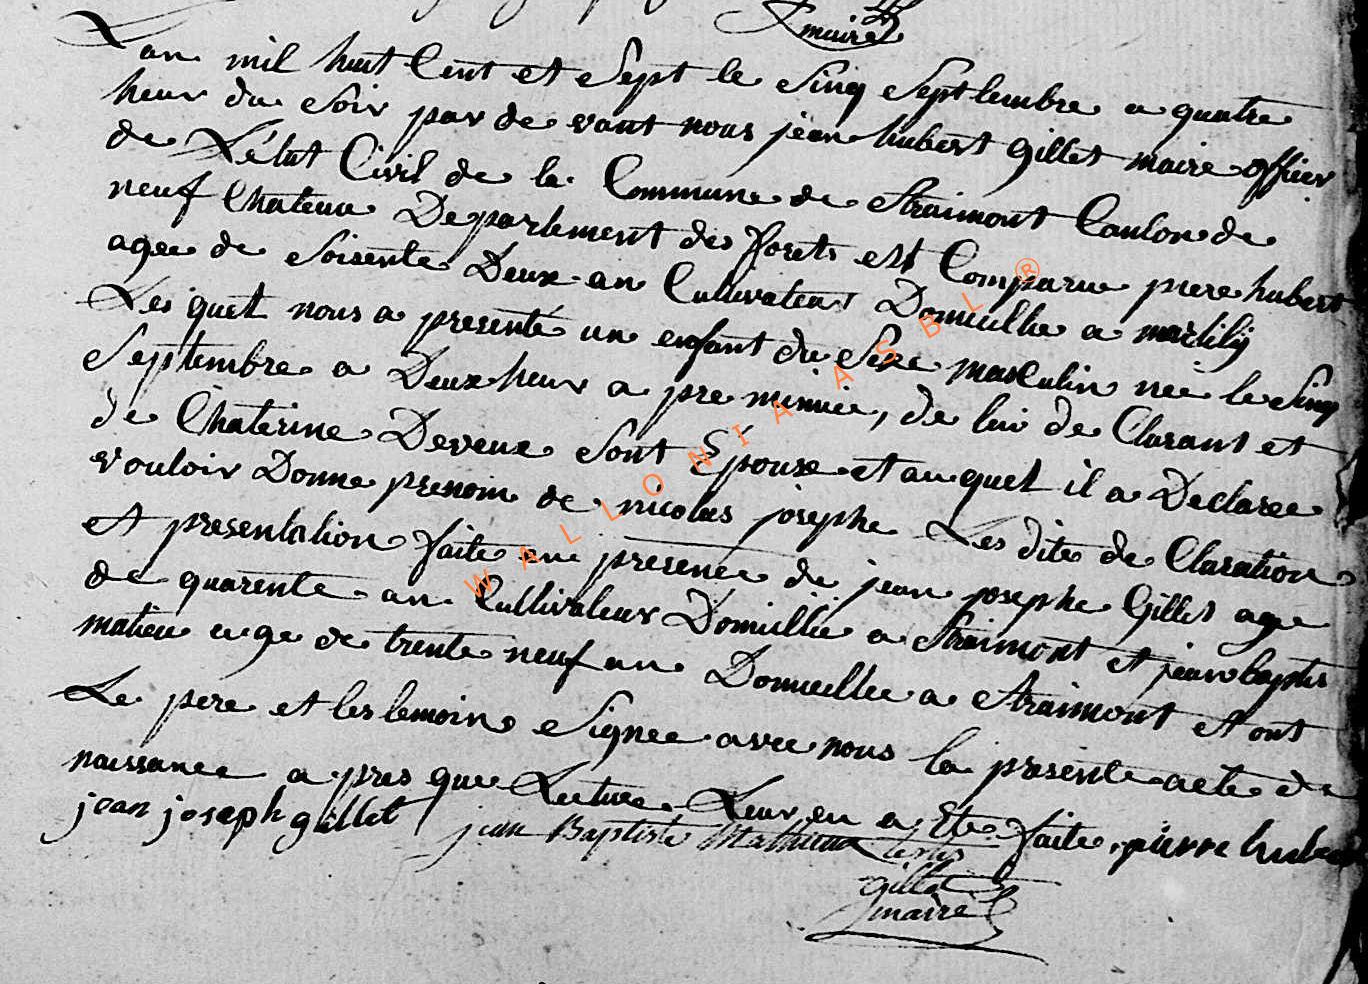 maire
Lan mil huit Cent et Sept le Sinq Septembre a quatre
heur du Soir par de vant nous jean hubert gillet maire officier
de Létat Civil de la Commune de Straimont Canton de
neuf Chateau Departement des forets est Comparue piere hubert
agee de Soisente Deux an Cultivateur Domicillie a martilly
Les quel nous a presenté un enfant du Sexe masculin née le Sinq
Septembre a Deux heur a pre minuie, de lui de Clarant et
de Chaterine Deveux Sont Épouse et auquel il a Declaree
vouloir Donne prenom de nicolas josephe Les dite de Claration
et presentation faite en presence de jean josephe Gillet age
de quarente an Cultivateur Domicillie a Straimont et jean baptis
matieu age de trente neuf an Domicillie a Straimont et ont
Le pere et les temoins Signee avec nous la presente acte de
naissance a pres que Lecture Leur en a Ete faite. pierre hubert
jean joseph gillet jean Baptiste Mathieux
gillet
maire
WALLONIA ASBL ®